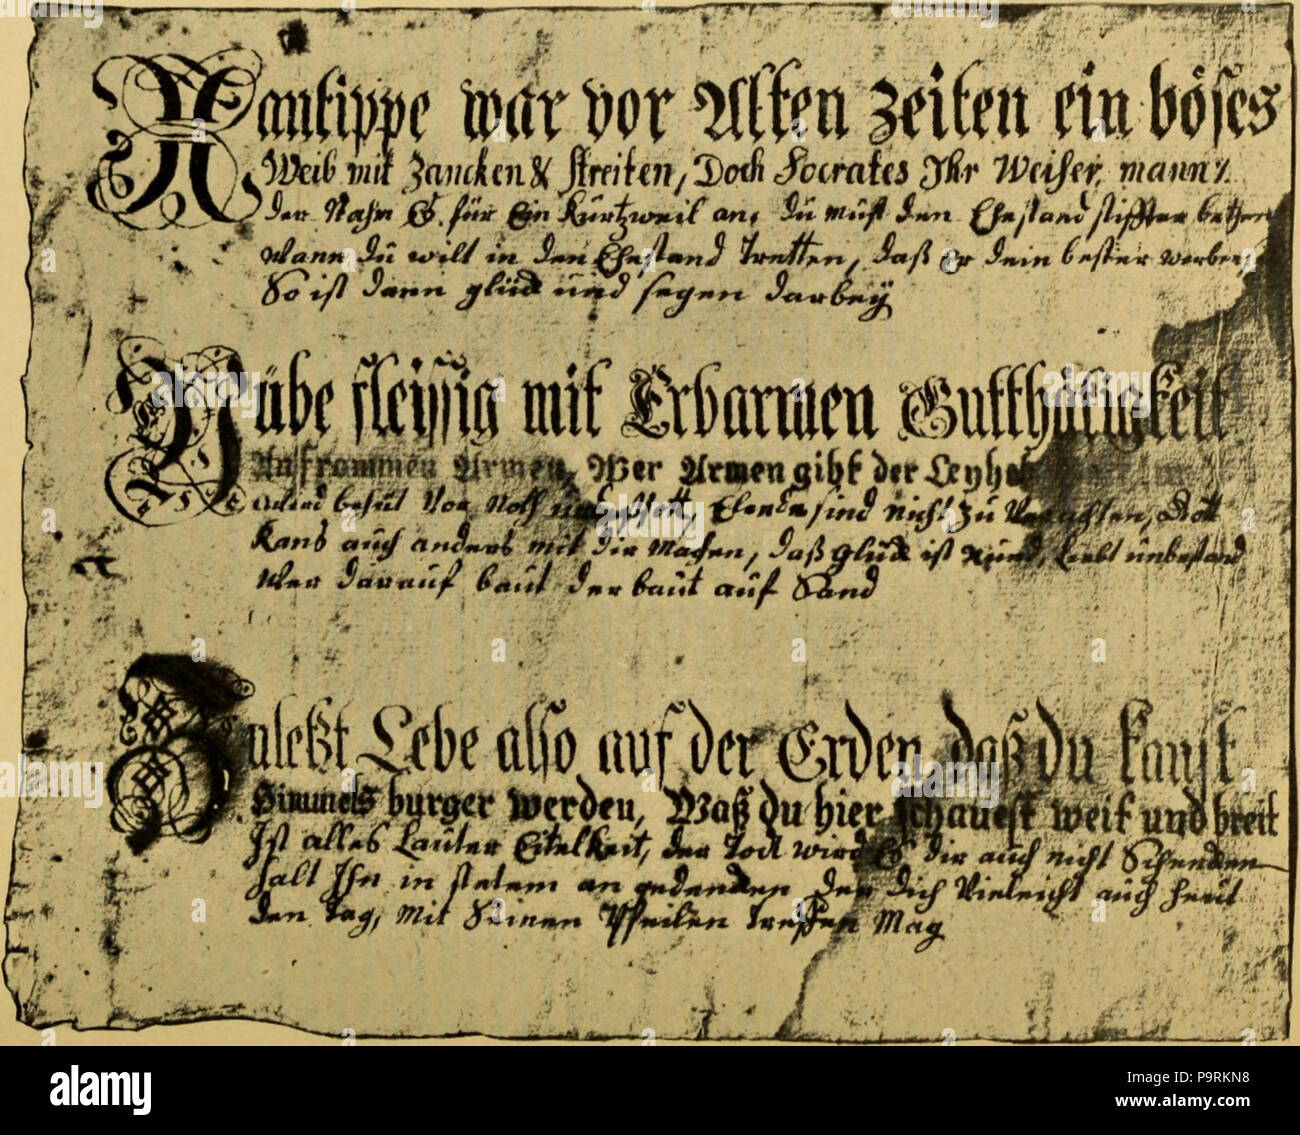 Xantippe war vor Alten zeiten ein böses
Weib mit Zancken & streiten, Doch Socrates Ihr Weiser mann
der Nahm Es für Ein Kurtzweil an, du must den Ehestand stiffter bethen
wann du wilt in den Ehestand tretten, daß Er dein bester werber
So ist dann glück und segen darbeÿ
Übe fleissig mit Erbarmen Gutthätigkeit
An frommen Armen, Wer Armen gibt der
wird behüt Vor Noth, Elende sind nicht zu Verachten, Gott
Kans auch anders mit dir Machen, daß glück ist Rund, Liebt unbestand
Wer darauf baut der baut auf Sand
Zuletzt Lebe also auf der Erden, daß du kanst
Himmels burger werden, Waß du hier schauest weit und breit
Ist alles Lauter Eitelkeit, der Todt wird Es dir auch nicht Schencken
halt Ihn in stetem an gedencken der dich Vieleicht auch heut
den tag, Mit Seinen Pfeilen treffen Mag
alamy
Image ID: P9RKN8
www.alamy.com